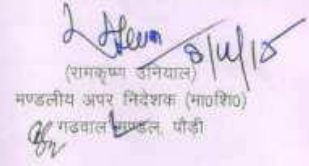 8/4/15
(रामकृष्ण उनियाल)
मण्डलीय अपर निदेशक (मा०शि०)
गढवाल मण्डल, पौड़ी